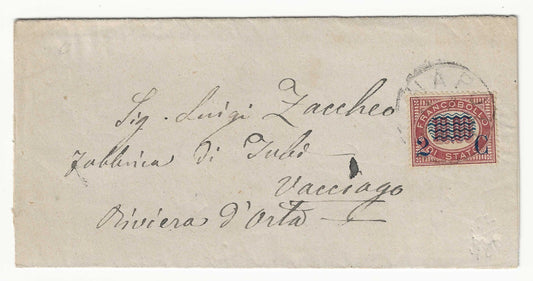 NAP
FRANCOBOLLO
DI STATO
2 C
Sig. Luigi Zaccheo
Fabbrica di Tubi
Vacciago
Riviera d'Orta